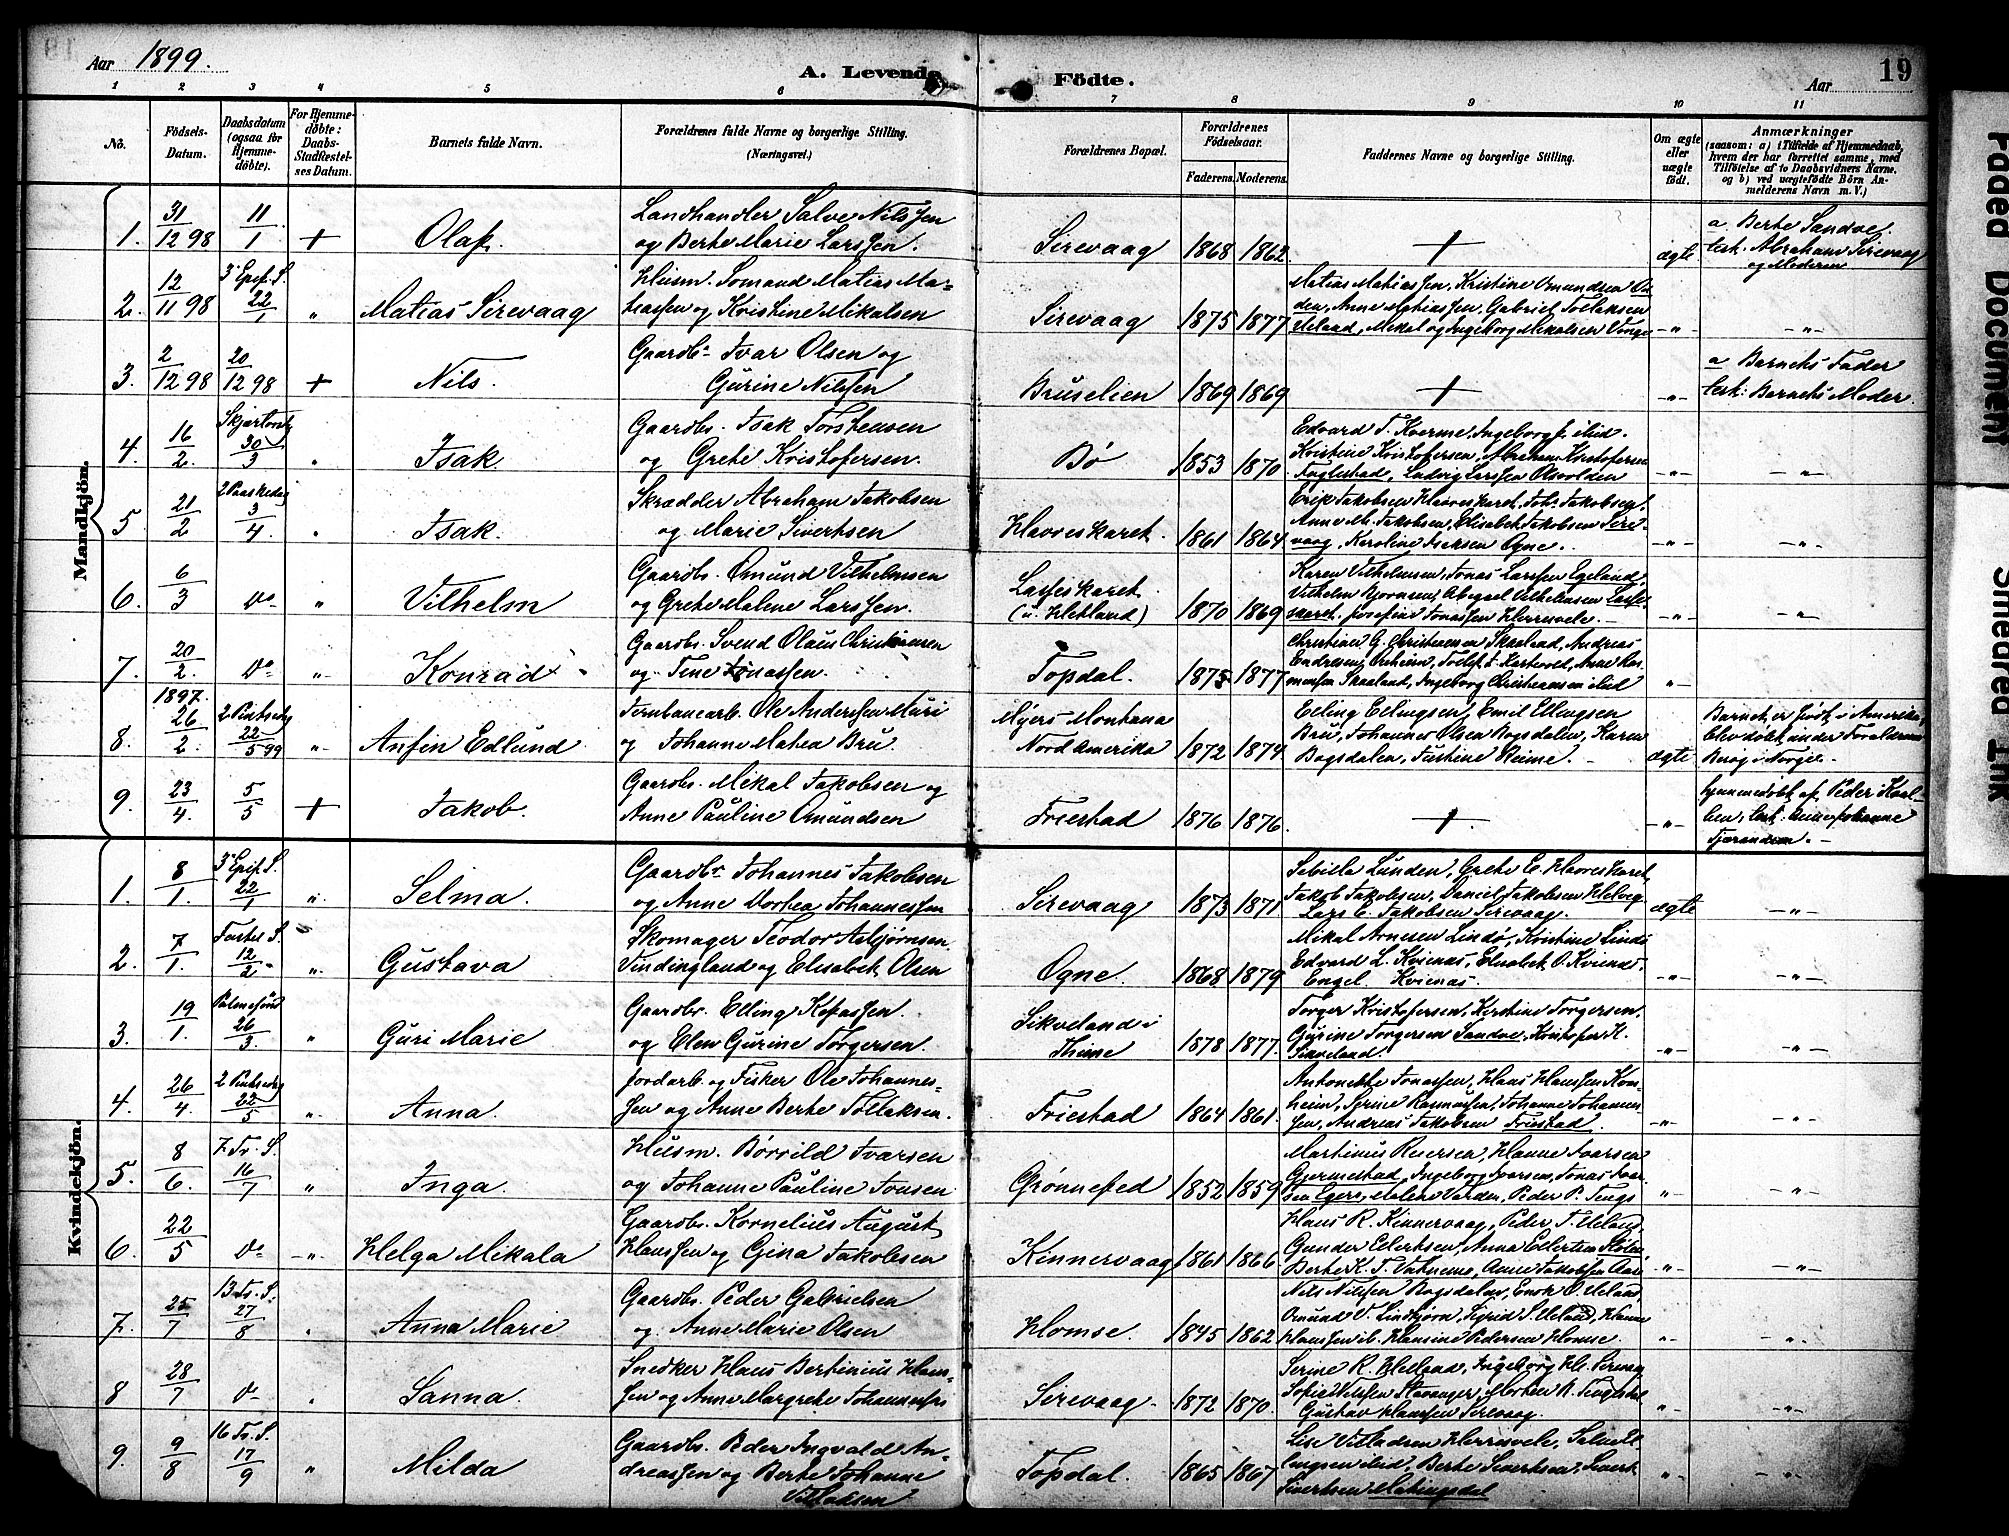 Aar 1899.
A. Levende Födte.
Aar
19
1 2 3 4 5 6 7 8 9 10 11
No.
Födsels-
Datum.
Daabsdatum
(ogsaa for
Hjemme-
döbte).
For Hjemme-
döbte:
Daabs-
Stadfæstel-
ses Datum.
Barnets fulde Navn.
Forældrenes fulde Navne og borgerlige Stilling.
(Næringsvei.)
Forældrenes Bopæl.
Forældrenes
Födselsaar.
Faderens. Moderens.
Faddernes Navne og borgerlige Stilling.
Om ægte
eller
uægte
födt.
Anmærkninger
(saasom: a) i Tilfælde af Hjemmedaab,
hvem der har forrettet samme, med
Tilföielse af to Daabsvidners Navne,
og b) ved uægtefödte Börn An-
melderens Navn m. V.)
Mandkjön.
1. 31/12 98 11/1 + Olaf.
Landhandler Salve Nilssen
og Berte Marie Larssen.
Sirevaag 1868 1862 + ægte
a Berte Sandve.
test. Abraham Sirevaag
og Moderen
2. 12/11 98 3' Epif. S. 22/1 " Matias Sirevaag
Husm. Sømand Matias Ma-
tiassen og Kristine Mikalsen
Sirevaag 1875 1877
Matias Matiassen, Kristine Omundsen
Anne Matiassen, Gabriel Tollaksen
Mikal og Ingeborg Mikalsen
-"- -"-
3. 2/12 98 20/12 98 + Nils.
Gaardbr. Ivar Olsen og
Gurine Nilssen
Bruselien 1869 1869 + "
a Barnets Fader
test: Barnets Moder.
4. 16/2. Skjærtorsdg 30/3 " Isak
Gaardbr. Isak Torstensen
og Grete Kristofersen.
Bø 1853 1870
Edvard T. Kverme, Ingeborg ibid.
Kristine Kristofersen, Abraham Kristofersen
Fuglestad, Ludvig Larssen Olsvolden
-"- -"-
5. 21/2 2 Paaskedag 3/4. " Isak.
Skrædder Abraham Jakobsen
og Marie Sivertsen
Havreskaret. 1861 1864
Erik Jakobsen Havreskaret, Joh. Jakobsen,
Anne M. Jakobsen, Elisabet Jakobsen Sire-
vaag, Karoline Isaksen Ogne.
-"- -"-
6. 6/3 do " Vilhelm
Gaardbr. Omund Vilhelmsen
og Grete Malene Larssen.
Lasseskaret
(u. Hetland) 1870 1869
Karen Vilhelmsen, Jonas Larssen Egeland,
Vilhelm Bjørnsen, Abigael Vilhelmsen Lasse-
skaret, Josefine Jonassen Herresvele.
-"- "
7. 20/2. do " Konrad
Gaardbr. Svend Olaus Christiansen
og Tine Jonassen.
Topdal. 1875 1877
Christian G. Christiansen Skaaland, Andreas
Skaaland, Ingeborg Christiansen ibid
"
8. 1897. 26/2. 2 Pintsedag 22/5 99 " Anfin Edlund
Jernbanearb. Ole Anderssen Muri
og Johanne Matea Bru
Myers Montana
Nord Amerika 1872 1874
Elling Ellingsen, Emil Ellingsen
Bru, Johannes Olsen Bogsdalen, Karen
Bogsdalen, Justine Reime. ægte
Barnet er født i Amerika,
blev døbt under Forældrenes
Besøg i Norge.
9. 23/4. 5/5 + Jakob.
Gaardbr. Mikal Jakobsen og
Anne Pauline Omundsen
Friestad 1876 1876. + -"-
hjemmedøbt af Peder
test. Anne Johanne
Kvindekjön.
1. 8/1. 3' Epif. S. 22/1 " Selma.
Gaardbr. Johannes Jakobsen
og Anne Dortea Johannessen
Sirevaag 1873 1871
Sibille Lunden, Grete E. Havreskaret,
Jakob Jakobsen, Daniel Jakobsen Helvig
Lars C. Jakobsen Sirevaag. ægte -"-
2. 7/1. Fastel. S. 12/2 " Gustava
Skomager Teodor Asbjørnsen
Vindingland og Elisabet Olsen
Ogne 1868 1879
Mikal Arnesen Lindø, Kristine Lindø
Edvard L. Kvienas, Elisabet O. Kvienas,
Engel Kvienas.
-"- -"-
3. 19/1. Palmesønd 26/3. " Guri Marie
Gaardbr. Elling Kefassen.
og Elen Gurine Torgersen.
Sikveland i
Thime 1878 1877.
Torger Kristofersen, Kirstine Torgersen,
Gurine Torgersen Sandve, Kristofer H.
Sikveland.
-"- -"-
4. 26/4. 2 Pintsedag 22/5 " Anna.
Jordarb. og Fisker Ole Johannes-
sen og Anne Berte Tollaksen.
Friestad 1864 1861.
Antonette Jonassen, Hans Hanssen Kom-
heim, Serine Rasmussen, Johanne Johannes-
sen, Andreas Jakobsen Friestad.
-"- -"-
5. 8/6. 7. Tr. S. 16/7 " Inga
Husm. Børrild Ivarsen
og Johanne Pauline Jonsen
Grønnefed 1852 1859
Martinius Reiersen, Hanne Ivarsen
Gjermestad, Ingeborg Ivarsen, Jonas Ivar-
sen Egere, Malene Varden, Peder P. Tengs
"- -"-
6. 22/5 do -"- Helga Mikala
Gaardbr. Kornelius August
Hanssen og Gina Jakobsen
Kinnervaag 1861 1866
Hans R. Kinnervaag, Peder T. Ueland,
Gunder Eilertsen, Anna Eilertsen
Berte K. T. Anne Jakobsen
"- -"-
7. 25/7 13 Tr. S. 27/8 " Anna Marie
Gaardbr. Peder Gabrielsen
og Anne Marie Olsen
Homse. 1845 1862
Nils Nilssen Bogsdalen, Enok O. Ueland,
Omund V. Lindtjørn, Sigrid S. Ueland, Hanne
Hanssen ib. Hansine Pedersen Homse.
"- -"-
8 28/7 do " Sanna.
Snedker Hans Bertinius Hans-
sen og Anne Margrete Johannessen
Sirevaag. 1872 1870.
Serine R. Ueland, Ingeborg
Sofie Nilssen Stavanger, Morten
Gustav Hanssen Sirevaag.
"- -"-
9. 9/8 16 Tr. S. 17/9 " Milda
Gaardbr. Peder Ingvald An-
dreassen og Berte Johanne
Villaksen
Topdal. 1865 1867
Lise Villadsen Herresvele,
ibid, Berte Sivertsen, Sivert
Sivertsen Matingsdal
"- "-
Faded Document
Smeared Ink